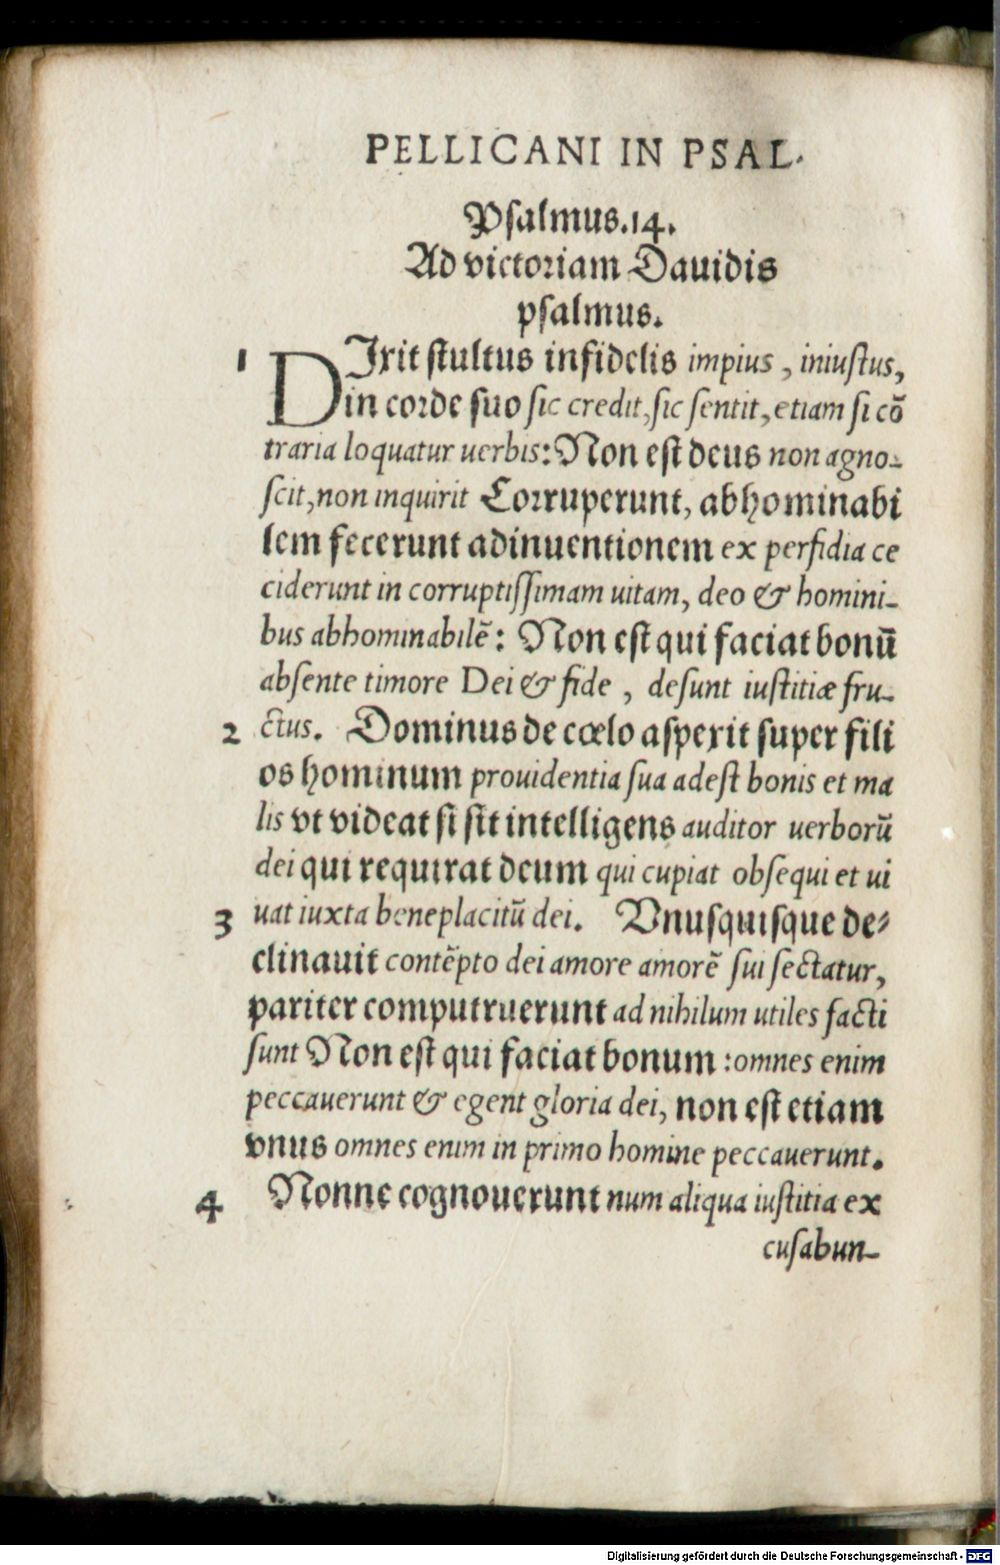 PELLICANI IN PSAL.
Psalmus.14.
Ad victoriam Dauidis
psalmus.
1 DIxit stultus infidelis impius, iniustus,
in corde suo sic credit, sic sentit, etiam si cõ
traria loquatur uerbis: Non est deus non agno-
scit, non inquirit Corruperunt, abhominabi
lem fecerunt adinuentionem ex perfidia ce
ciderunt in corruptissimam uitam, deo & homini-
bus abhominabilẽ: Non est qui faciat bonũ
absente timore Dei & fide, desunt iustitiæ fru-
2 ctus. Dominus de cœlo aspexit super fili
os hominum prouidentia sua adest bonis et ma
lis vt videat si sit intelligens auditor uerborũ
dei qui requirat deum qui cupiat obsequi et ui
3 uat iuxta beneplacitũ dei. Vnusquisque de-
clinauit contẽpto dei amore amorẽ sui sectatur,
pariter computruerunt ad nihilum utiles facti
sunt Non est qui faciat bonum: omnes enim
peccauerunt & egent gloria dei, non est etiam
vnus omnes enim in primo homine peccauerunt.
4 Nonne cognouerunt num aliqua iustitia ex
cusabun-
Digitalisierung gefördert durch die Deutsche Forschungsgemeinschaft - DFG